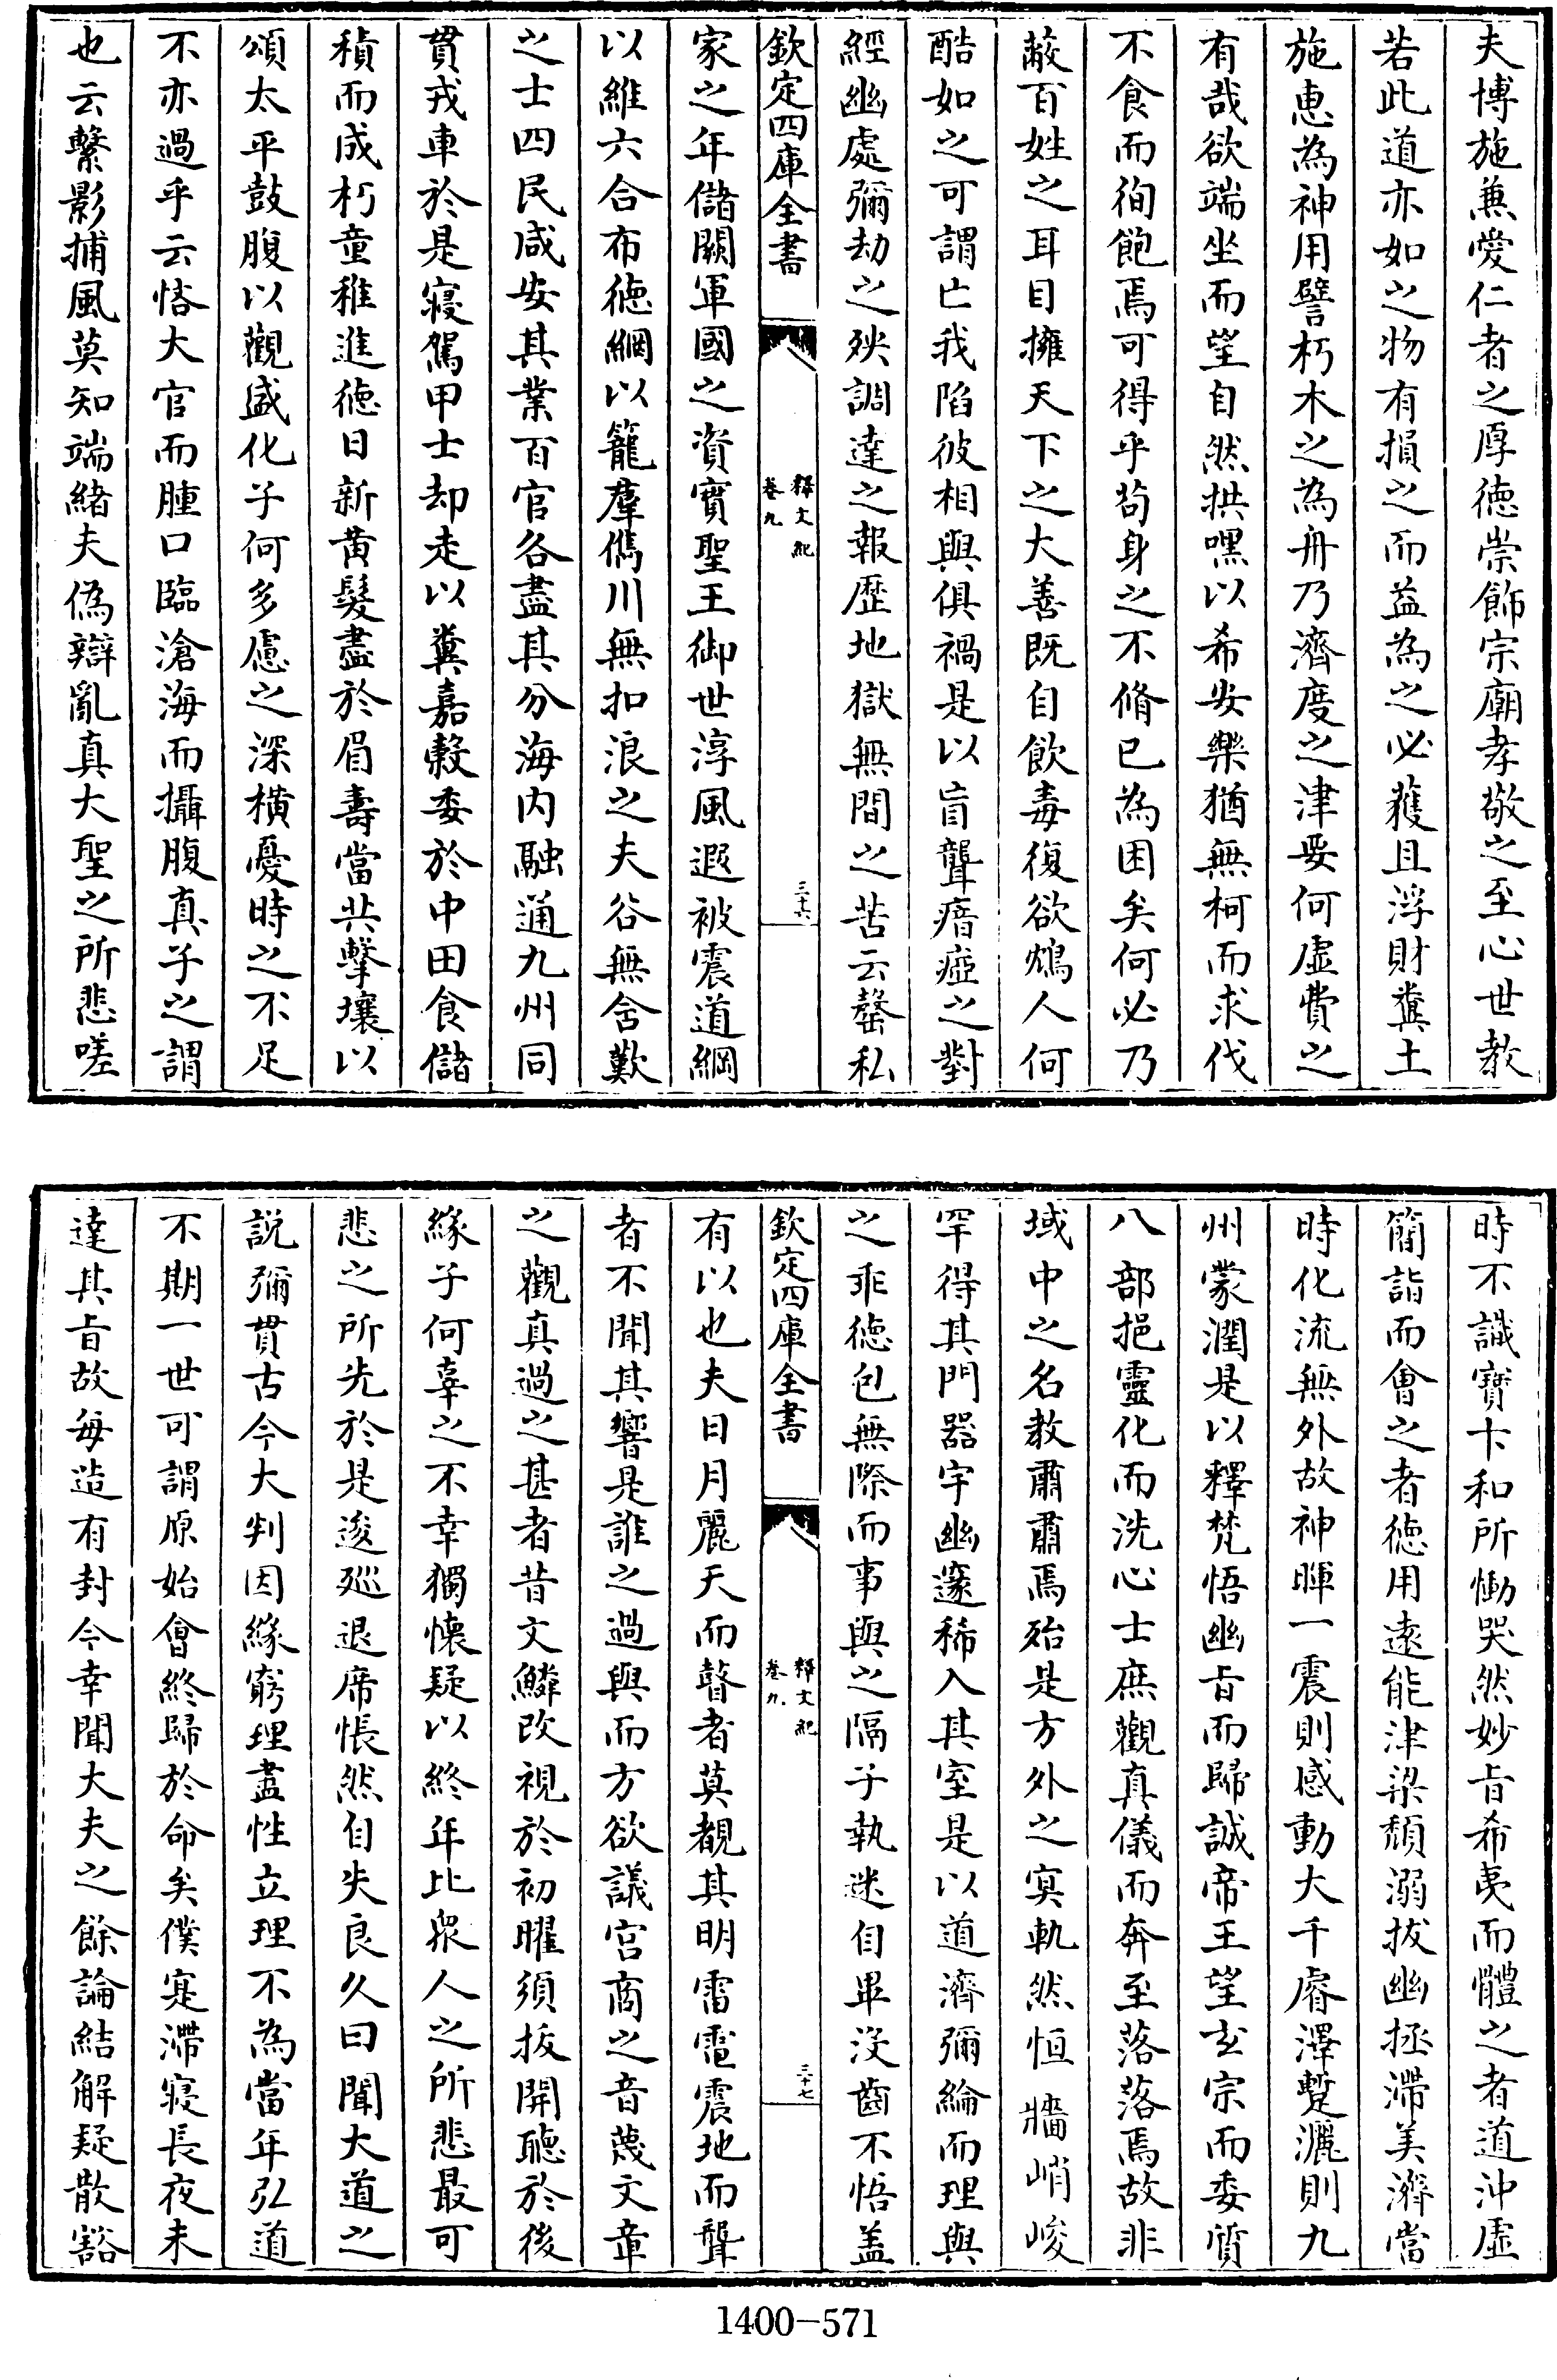 夫博施兼愛仁者之厚徳崇飾宗廟孝敬之至心世教
若此道亦如之物有損之而益為之必獲且浮財糞土
施惠為神用譬朽木之為舟乃濟度之津要何虚費之
有哉欲端坐而望自然拱嘿以希安樂猶無柯而求伐
不食而徇飽焉可得乎茍身之不脩已為困矣何必乃
蔽百姓之耳目擁天下之大善既自飲毒復欲鴆人何
酷如之可謂亡我陷彼相與俱禍是以盲聾瘖瘂之對
經幽處彌劫之殃調達之報歴地獄無間之苦云罄私
欽定四庫全書
釋文紀
卷九
三十六
家之年儲闕軍國之資實聖王御世淳風遐被震道綱
以維六合布徳網以籠羣儁川無扣浪之夫谷無含歎
之士四民咸安其業百官各盡其分海内融通九州同
貫戎車於是寢駕甲士却走以糞嘉穀委於中田食儲
積而成朽童稚進徳日新黄髮盡於眉壽當共擊壤以
頌太平鼓腹以觀盛化子何多慮之深横憂時之不足
不亦過乎云悋大官而腫口臨滄海而攝腹真子之謂
也云繫影捕風莫知端緒夫偽辯亂真大聖之所悲嗟
時不識寶卞和所慟哭然妙旨希夷而體之者道沖虚
簡詣而會之者徳用遠能津梁頺溺拔幽拯滯美濟當
時化流無外故神暉一震則感動大千睿澤蹔灑則九
州蒙潤是以釋梵悟幽旨而歸誠帝王望𤣥宗而委質
八部挹靈化而洗心士庶觀真儀而奔至落落焉故非
域中之名教肅肅焉殆是方外之㝠軌然恒牆峭峻
罕得其門器宇幽邃稀入其室是以道濟彌綸而理與
之乖徳包無際而事與之隔子執迷自畢没齒不悟盖
欽定四庫全書
釋文紀
卷九
三十七
有以也夫日月麗天而瞽者莫覩其明雷電震地而聾
者不聞其響是誰之過與而方欲議宫商之音蔑文章
之觀真過之甚者昔文鱗改視於初曜須拔開聴於後
緣子何辜之不幸獨懷疑以終年比衆人之所悲最可
悲之所先於是逡廵退席悵然自失良久曰聞大道之
説彌貫古今大判因緣窮理盡性立理不為當年弘道
不期一世可謂原始會終歸於命矣僕寔滯寢長夜未
達其旨故每造有封今幸聞大夫之餘論結解疑散豁
1400-571